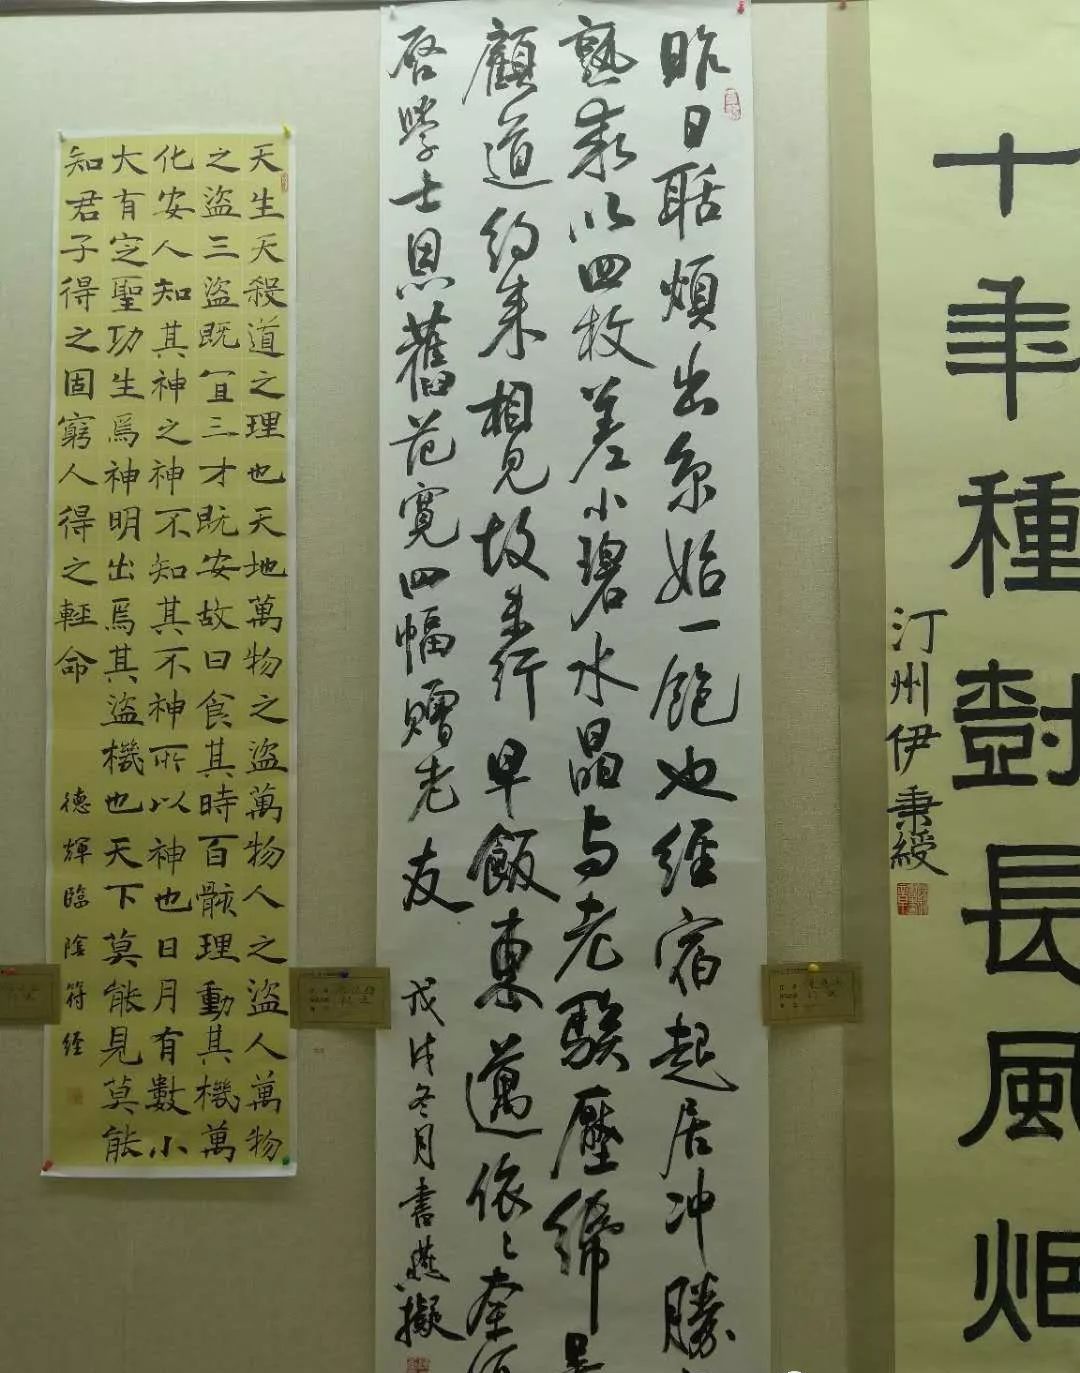 十年種樹長風
汀州伊秉綬
昨日聒煩出京始一飽也經宿起居冲勝
熟以四枚差小碧水晶与老壓
顧道約来相見故未行早飯東邁依〻奈何
啓學士思舊范寬四幅贈老友
戊戌冬月書燕擬
天生天殺道之理也天地萬物之盜萬物人之盜人萬物
之盜三盜既宜三才既安故曰食其時百骸理動其機萬
化安人知其神之神不知其不神所以神也日月有數小
大有定聖功生焉神明出焉其盜機也天下莫能見莫能
知君子得之固窮人得之輕命
德輝臨陰符經